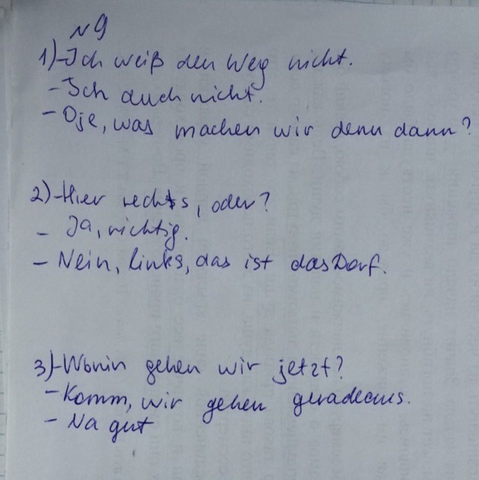 №9
1)-Ich weiß den Weg nicht.
-Ich auch nicht.
-Oje, was machen wir denn dann?
2)-Hier rechts, oder?
- Ja, richtig.
- Nein, links, das ist das Dorf.
3)-Wohin gehen wir jetzt?
-Komm, wir gehen geradeaus.
- Na gut